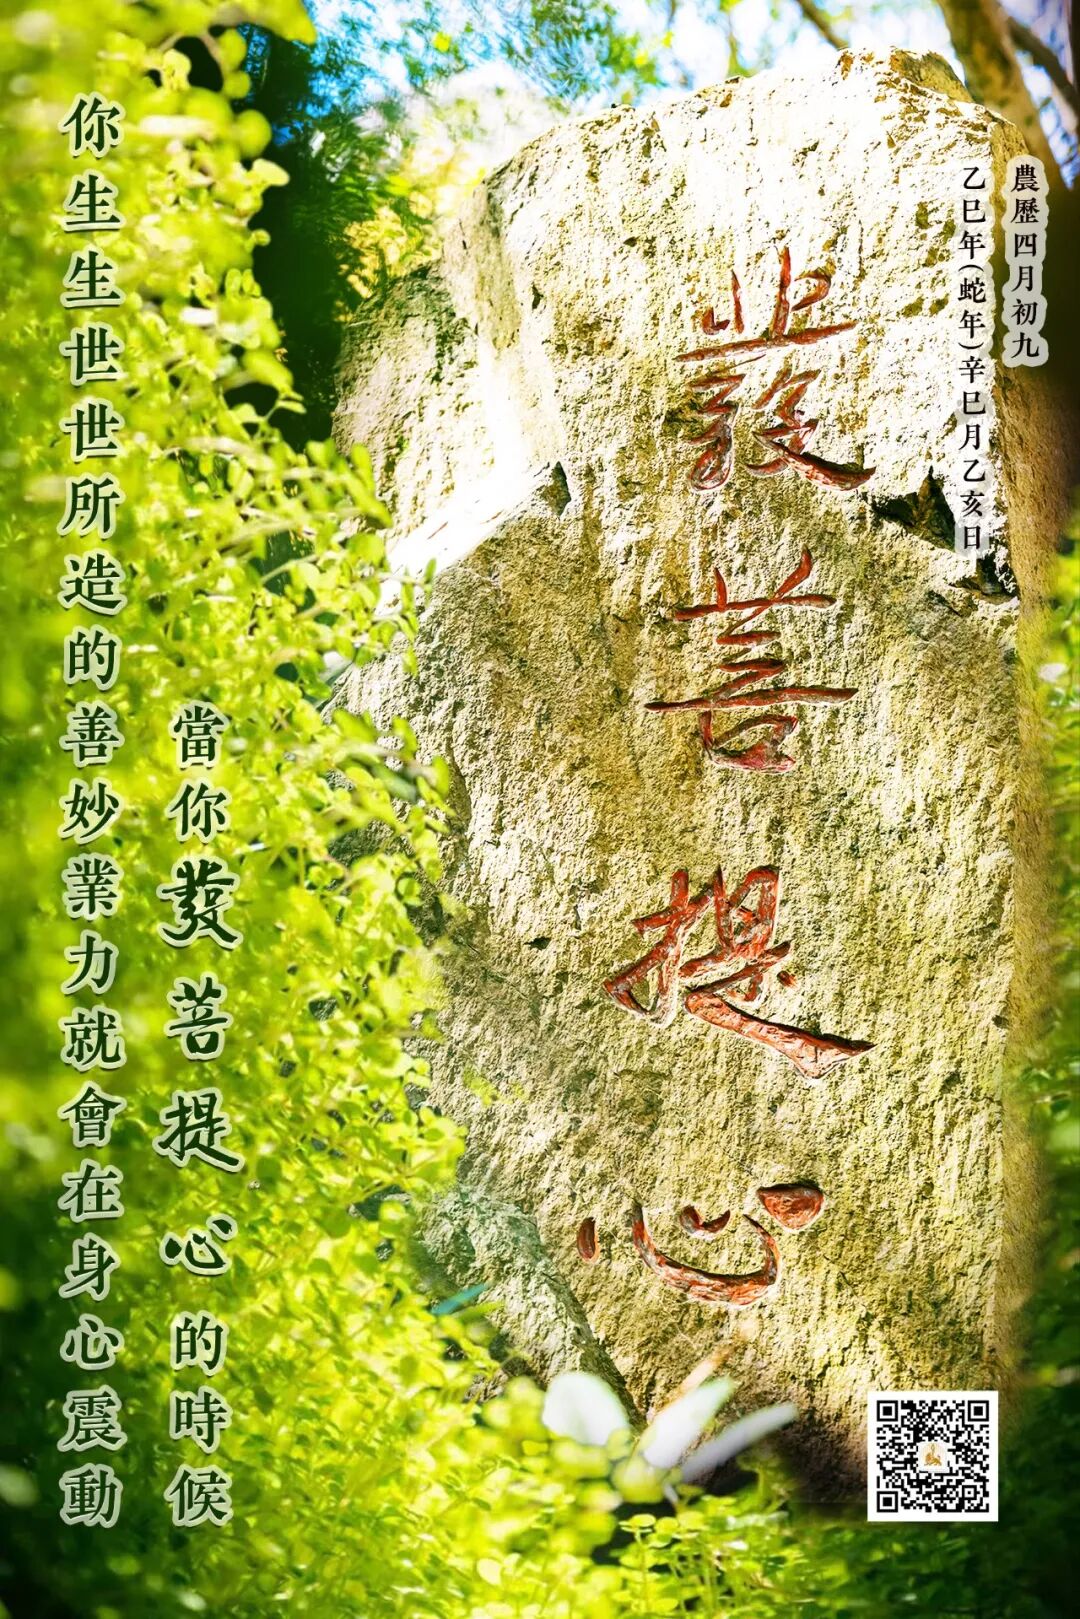 農歷四月初九
乙巳年(蛇年)辛巳月乙亥日
發菩提心
當你發菩提心的時候
你生生世世所造的善妙業力就會在身心震動